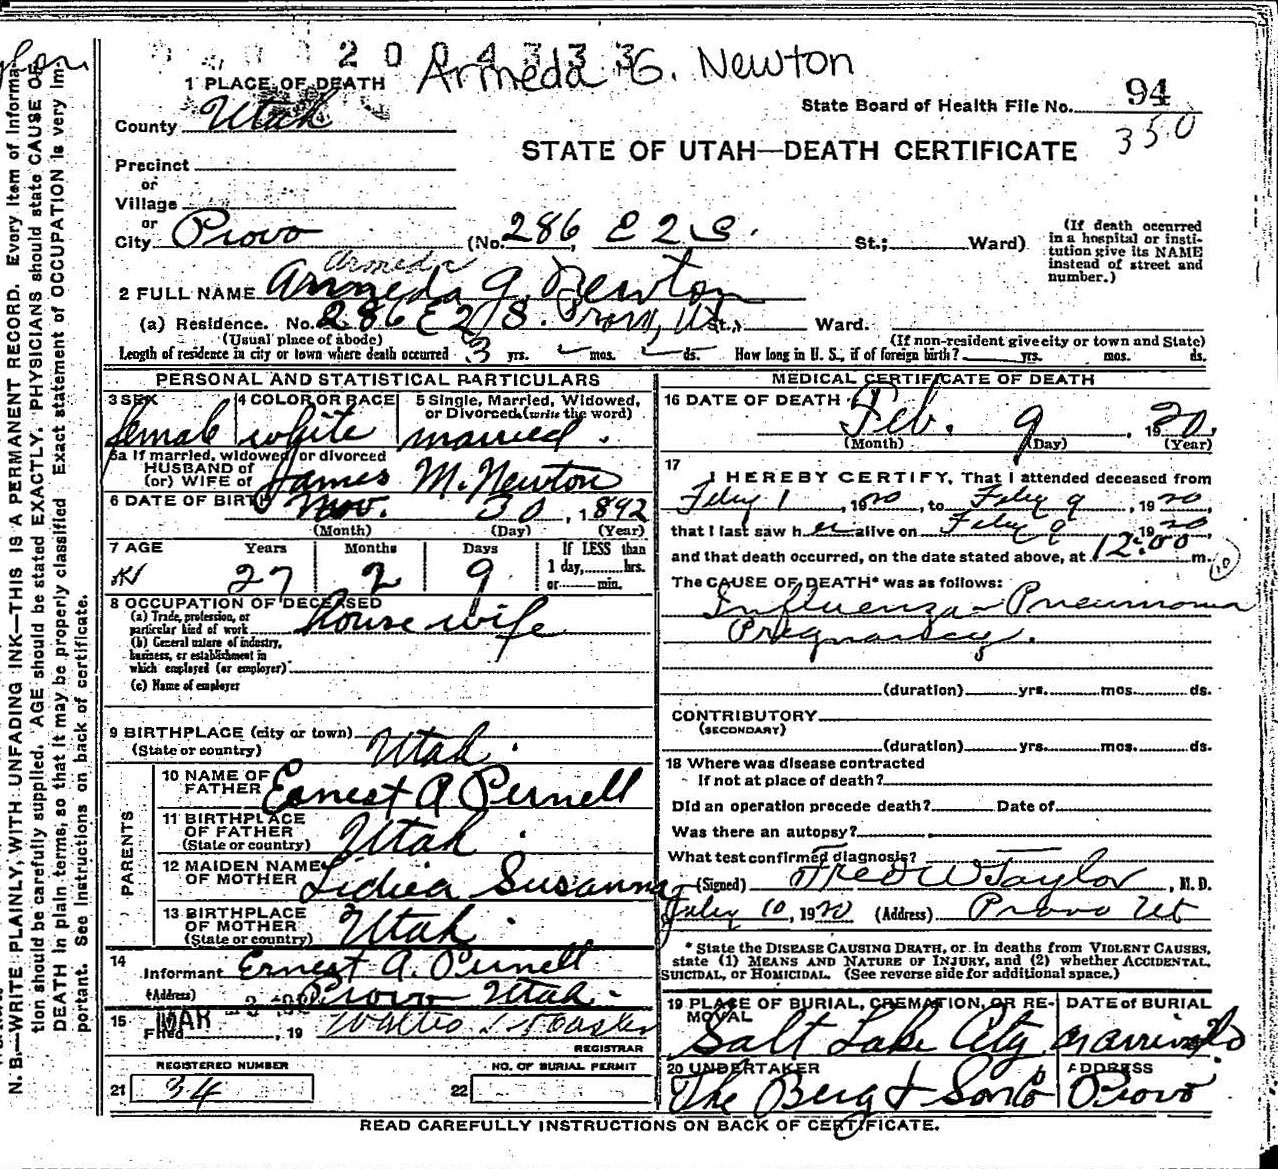 2004333
Armeda G. Newton
1 PLACE OF DEATH
State Board of Health File No. 94
350
County Utah
STATE OF UTAH—DEATH CERTIFICATE
Precinct
or
Village
or
City Provo (No. 286 E 2 S. St.; Ward)
(If death occurred in a hospital or institution give its NAME instead of street and number.)
Armeda
2 FULL NAME Armeda G. Newton
(a) Residence. No. 286 E 2 S. Provo, Ut. St., Ward.
(Usual place of abode) (If non-resident give city or town and State)
Length of residence in city or town where death occurred 3 yrs. mos. ds. How long in U. S., if of foreign birth? yrs. mos. ds.
PERSONAL AND STATISTICAL PARTICULARS
3 SEX 4 COLOR OR RACE 5 Single, Married, Widowed, or Divorced (write the word)
female white married.
5a If married, widowed or divorced
HUSBAND of
(or) WIFE of James M. Newton
6 DATE OF BIRTH Nov. 30, 1892
(Month) (Day) (Year)
7 AGE Years Months Days If LESS than
1 day, hrs.
or min.
27 2 9
8 OCCUPATION OF DECEASED
(a) Trade, profession, or particular kind of work housewife
(b) General nature of industry, business, or establishment in which employed (or employer)
(c) Name of employer
9 BIRTHPLACE (city or town)
(State or country) Utah.
PARENTS
10 NAME OF FATHER Ernest A Pernell
11 BIRTHPLACE OF FATHER
(State or country) Utah.
12 MAIDEN NAME OF MOTHER Lidiea Susanna
13 BIRTHPLACE OF MOTHER
(State or country) Utah.
14
Informant Ernest A. Purnell
(Address) Provo Utah.
15 Filed MAR 3, 19
REGISTRAR
REGISTERED NUMBER NO. OF BURIAL PERMIT
21 34 22
MEDICAL CERTIFICATE OF DEATH
16 DATE OF DEATH
Feb. 9, 1920.
(Month) (Day) (Year)
17
I HEREBY CERTIFY, That I attended deceased from
Feby 1, 1920, to Feby 9, 1920
that I last saw her alive on Feby 9 1920
and that death occurred, on the date stated above, at 12:00 m.
10
The CAUSE OF DEATH* was as follows:
Influenza - Pneumonia
Pregnancy.
(duration) yrs. mos. ds.
CONTRIBUTORY
(SECONDARY)
(duration) yrs. mos. ds.
18 Where was disease contracted
If not at place of death?
Did an operation precede death? Date of
Was there an autopsy?
What test confirmed diagnosis?
(Signed) Fred W Taylor, M. D.
Feby 10, 1920 (Address) Provo Ut
* State the DISEASE CAUSING DEATH, or in deaths from VIOLENT CAUSES,
state (1) MEANS AND NATURE OF INJURY, and (2) whether ACCIDENTAL,
SUICIDAL, or HOMICIDAL. (See reverse side for additional space.)
19 PLACE OF BURIAL, CREMATION, OR REMOVAL DATE of BURIAL
Salt Lake City
20 UNDERTAKER ADDRESS
The Berg & Sons Co Provo
READ CAREFULLY INSTRUCTIONS ON BACK OF CERTIFICATE.
N. B.—WRITE PLAINLY, WITH UNFADING INK—THIS IS A PERMANENT RECORD. Every item of informa-
tion should be carefully supplied. AGE should be stated EXACTLY. PHYSICIANS should state CAUSE OF
DEATH in plain terms, so that it may be properly classified. Exact statement of OCCUPATION is very im-
portant. See instructions on back of certificate.